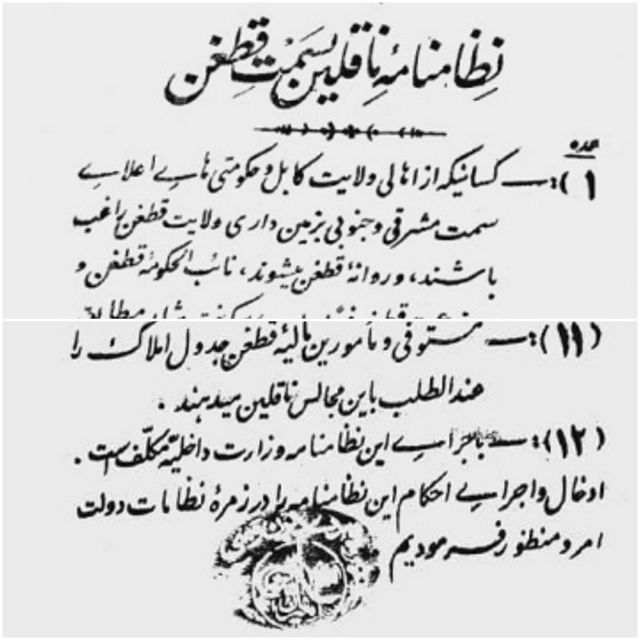 نظامنامۀ ناقلین بسمت قطغن
ماده
(۱):— کسانیکه از اهالی ولایت کابل و حکومتی هاے اعلاے
سمت مشرقی و جنوبی بزمین داری ولایت قطغن راغب
باشند، و روانۀ قطغن میشوند، نائب الحکومۀ قطغن و
(۱۱):— مستوفی و مأمورین مالیۀ قطغن جدول املاک را
عندالطلب باین مجالس ناقلین میدهند .
(۱۲):— باجراے این نظامنامه وزارت داخلیه مکلف است .
ادخال و اجراے احکام این نظامنامه را در زمرۀ نظامات دولت
امر و منظور فرمودیم